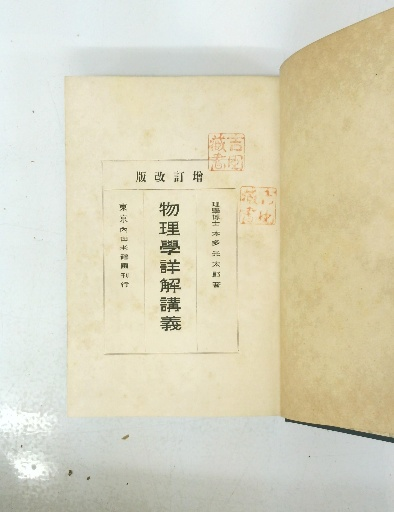 増訂改版
理學博士 本多光太郎著
物理學詳解講義
東京内田老鶴圃刊行